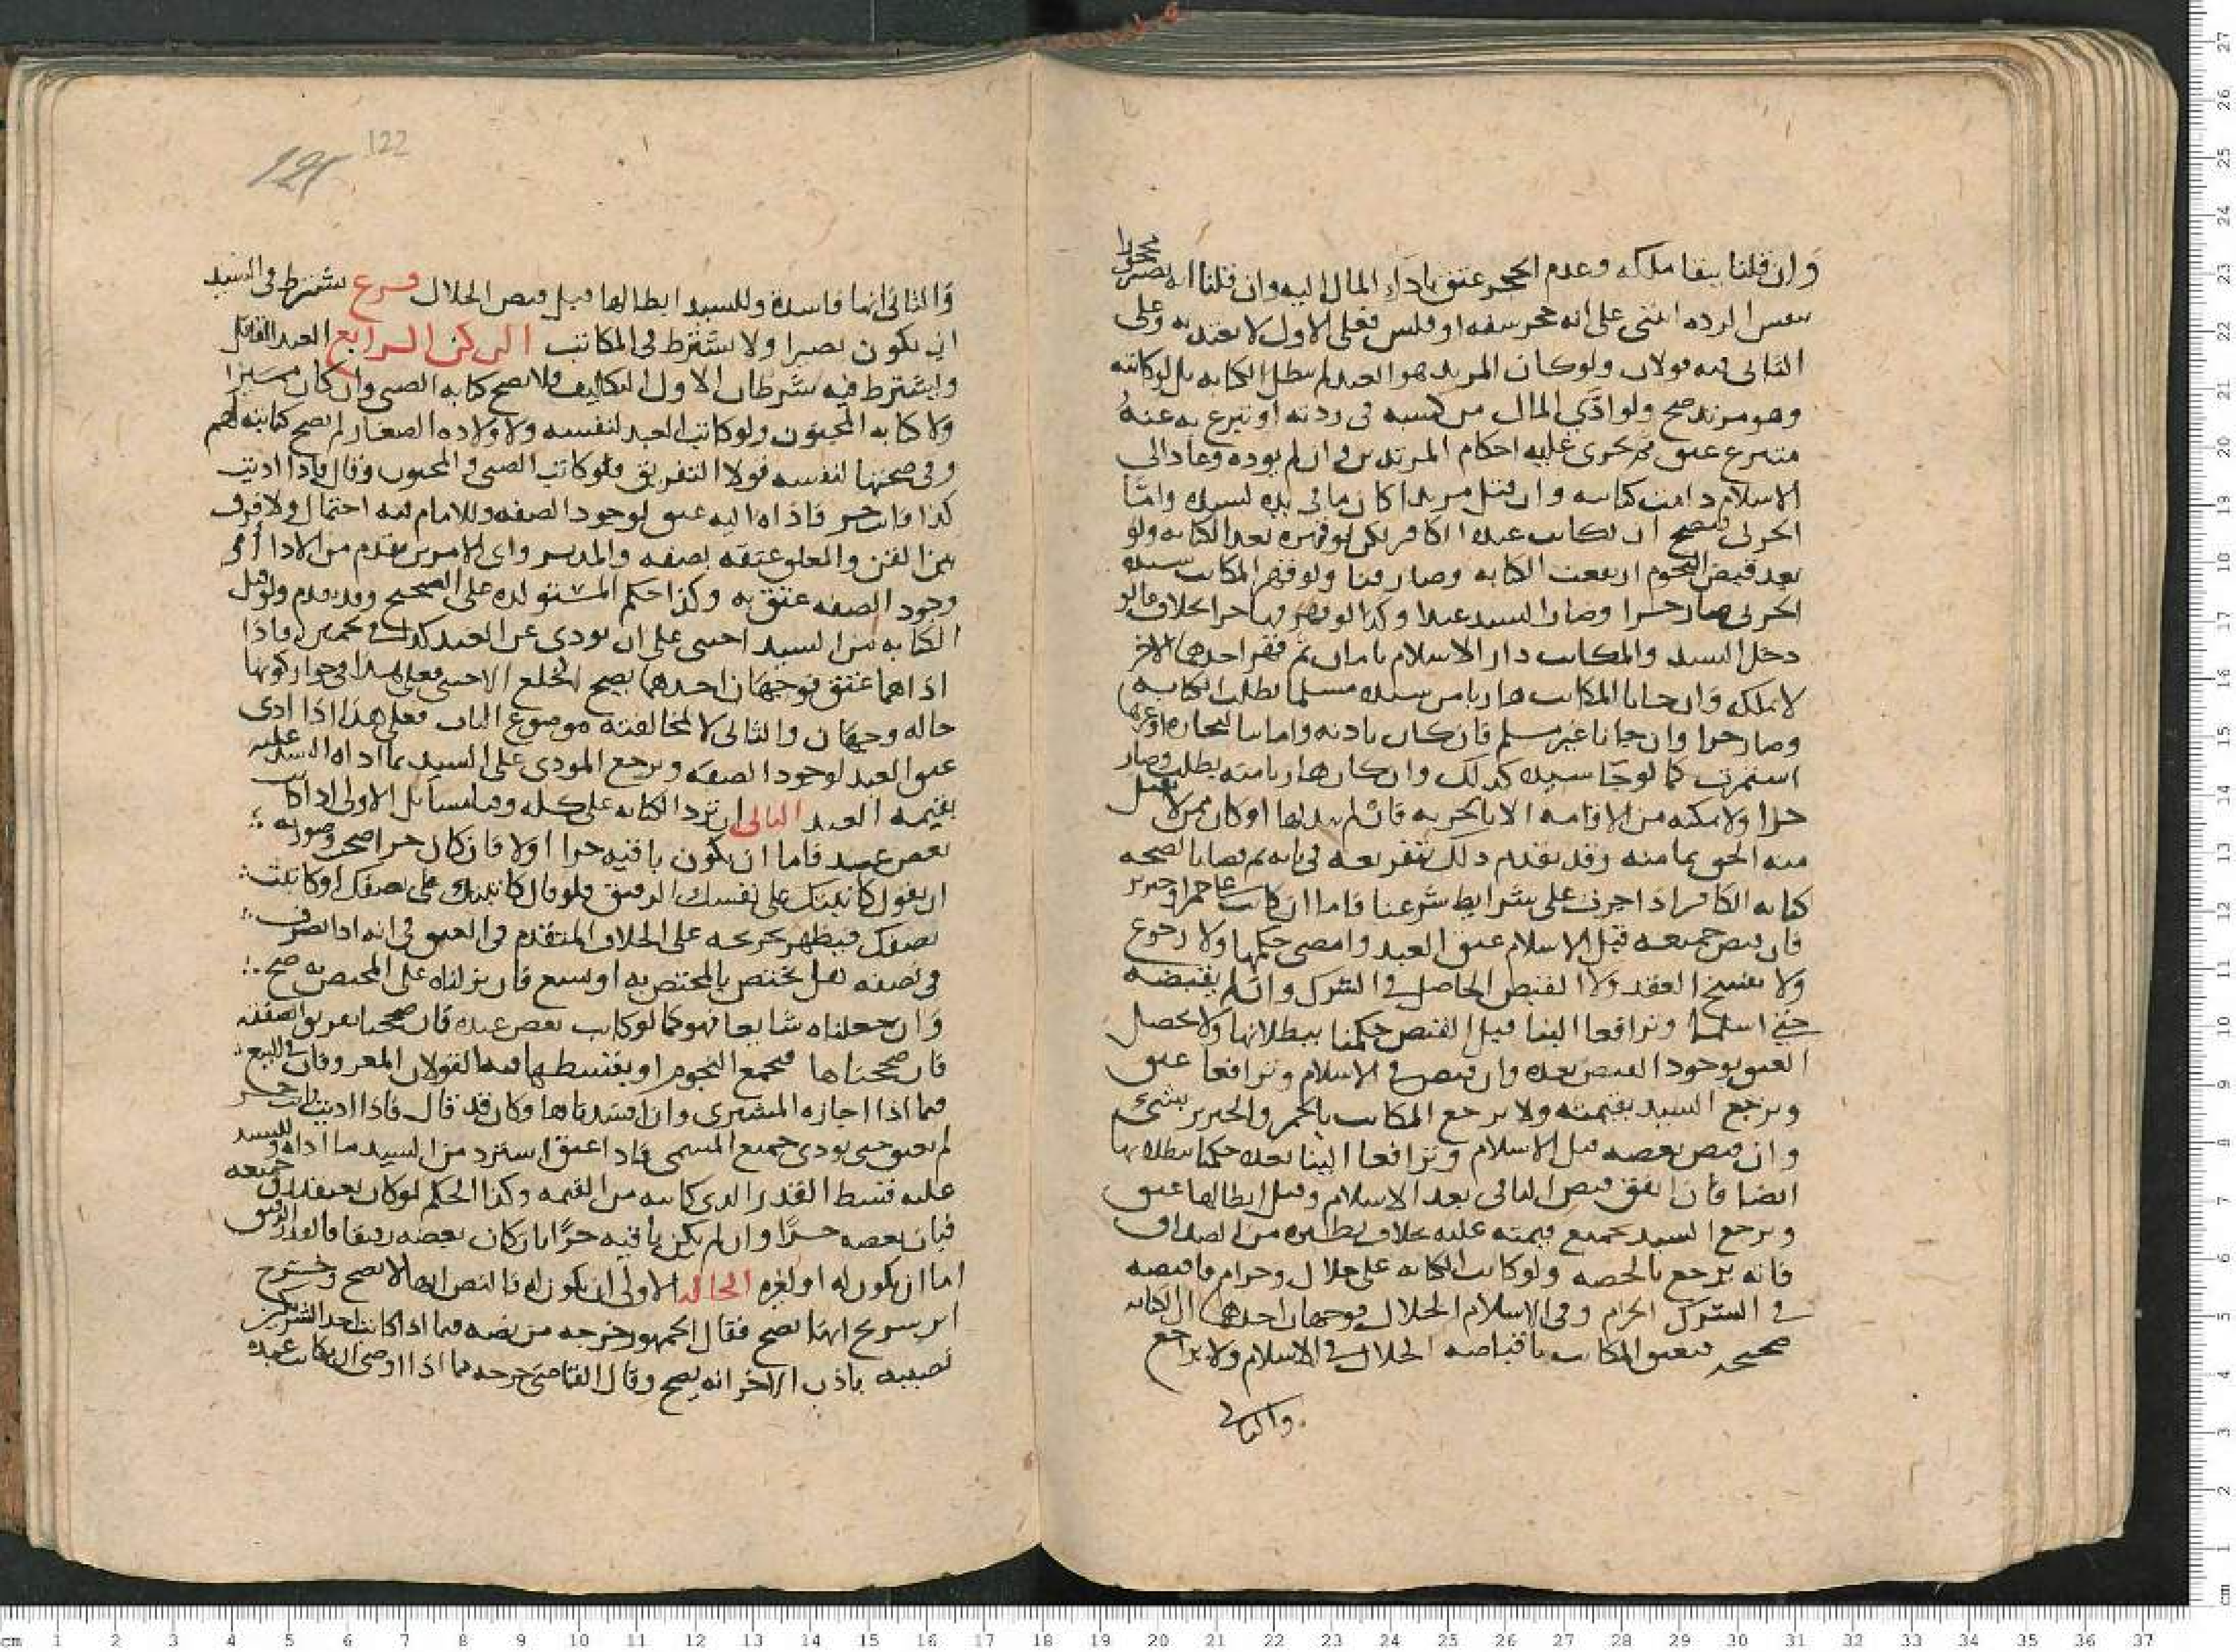 وان قلنا ببقا ملكه وعدم الحجر عتق باداء المال اليه وان قلنا انه يصير محجورا
بنفس الرده انبنى على انه حجر سفه او فلس فعلى الاول لا يعتد به وعلى
الثانى فيه قولان ولو كان المرتد هو العبد لم تبطل الكتابه بل لو كاتبه
وهو مرتد صح ولو ادى المال من كسبه فى ردته او تبرع به عنه
متبرع عتق ثم يجرى عليه احكام المرتدين فان لم يوده وعاد الى
الاسلام دامت كتابته وان قتل مرتدا كان ما فى يده لسيده واما
الحربى فيصح ان يكاتب عبده الكافر لكن لو قهره بعد الكتابه ولو
بعد قبض النجوم ارتفعت الكتابه وصار قنا ولو قهر المكاتب سيده
الحربى صار حرا وصار السيد عبدا وكذا لو قهر فيها حرا بخلاف ما لو
دخل السيد والمكاتب دار الاسلام بامان ثم قهر احدهما الاخر
لا يملك وان جانا المكاتب هاربا من سيده مسلما بطلت الكتابه
وصار حرا وان جانا غير مسلم فان كان باذنه واماننا لتجاره او غيرها
استمرت كما لو جا سيده كذلك وان كان هاربا منه بطلت وصار
حرا ولا يمكنه من الاقامه الا بالجزيه فان لم يبذلها او كان ممن لا تقبل
منه الحق بمامنه وقد تقدم ذلك بتفريعه فى بابه ثم قضايا لصحه
كتابه الكافر اذا جرت على شرايط شرعنا فاما ان كاتب على خمر او خنزير
فان قبض جميعه قبل الاسلام عتق العبد وامضى حكمها ولا رجوع
ولا يفسخ العقد ولا القبض الحاصل فى الشرك وان لم يقبضه
حتى اسلما وترافعا الينا قبل القبض حكمنا ببطلانها ولا يحصل
العتق بوجود القبض بعده وان قبض فى الاسلام وترافعا عتق
ويرجع السيد بقيمته ولا يرجع المكاتب بالخمر والخنزير بشىء
وان قبض بعضه قبل الاسلام وترافعا الينا بعده حكمنا ببطلانها
ايضا فان اتفق قبض الباقى بعد الاسلام وقبل ابطالها عتق
ويرجع السيد بجميع قيمته عليه بخلاف نظيره من الصداق
فانه يرجع بالحصه ولو كانت الكتابه على حلال وحرام فاقبضه
فى الشرك الحرام وفى الاسلام الحلال فوجهان احدهما ان الكتابه
صحيحه فيعتق المكاتب باقباضه الحلال فى الاسلام ولا تراجع
والثانى
122
والثانى انها فاسدة وللسيد ابطالها قبل قبض الحلال فرع يشترط فى السيد
ان يكون بصيرا ولا يشترط فى المكاتب الركن الرابع العبد القابل
ويشترط فيه شرطان الاول التكليف فلا تصح كتابه الصبى وان كان مميزا
ولا كتابه المجنون ولو كاتب العبد لنفسه ولاولاده الصغار لم تصح كتابته لهم
وفى صحتها لنفسه قولا التفريق فلو كاتب الصبى والمجنون وقال فاذا اديت
كذا فانت حر فاداه اليه عتق لوجود الصفه وللامام فيه احتمال ولا فرق
بين القن والمعلق عتقه بصفه والمدبر واى الامرين تقدم من الادا او
وجود الصفه عتق به وكذا حكم المستولده على الصحيح وقد تقدم ولو قبل
الكتابه من السيد اجنبى على ان يودى عن العبد كذا فى نجمين فاذا
اداهما عتق فوجهان احدهما يصح كخلع الاجنبى فعلى هذا فى جواز كونها
حاله وجهان والثانى لا لمخالفته موضوع الباب فعلى هذا اذا ادى
عتق العبد لوجود الصفه ويرجع المودى على السيد بما اداه والسيد عليه
بقيمه العبد الثانى ان ترد الكتابه على كله وفيه مسايل الاولى اذا كاتب
بعض عبد فاما ان يكون باقيه حرا او لا فان كان حرا صح وصورته
ان يقول كاتبتك على نفسك الرقيق فلو قال كاتبتك على نصفك او كاتبت
نصفك فيظهر تخريجه على الخلاف المتقدم فى العتق فى انه اذا تصرف
فى نصفه هل يختص بالمختص به او يشيع فان نزلناه على المختص به صح
وان جعلناه شايعا فهو كما لو كاتب بعض عبده فان صححنا تفريق الصفقه
فان صححناها فبجميع النجوم او بقسطها فيه القولان المعروفان فى البيع
فيما اذا اجازه المشترى وان افسدناها وكان قد قال فاذا اديت فانت حر
لم يعتق حتى يودى جميع المسمى فاذا عتق استرد من السيد ما اداه وللسيد
عليه قسط القدر الذى كاتبه من القيمه وكذا الحكم لو كان يعتقد رق جميعه
فبان بعضه حرا وان لم يكن باقيه حرا بان كان بعضه رقيقا فالقدر الرقيق
اما ان يكون له او لغيره الحاله الاولى ان يكون له فالنص انها لا تصح وخرج
ابن سريج انها تصح فقال الجمهور خرجه من نصه فيما اذا كاتب احد الشريكين
نصيبه باذن الاخر انه يصح وقال القاضى خرجه مما اذا اوصى ان يكاتب عبده